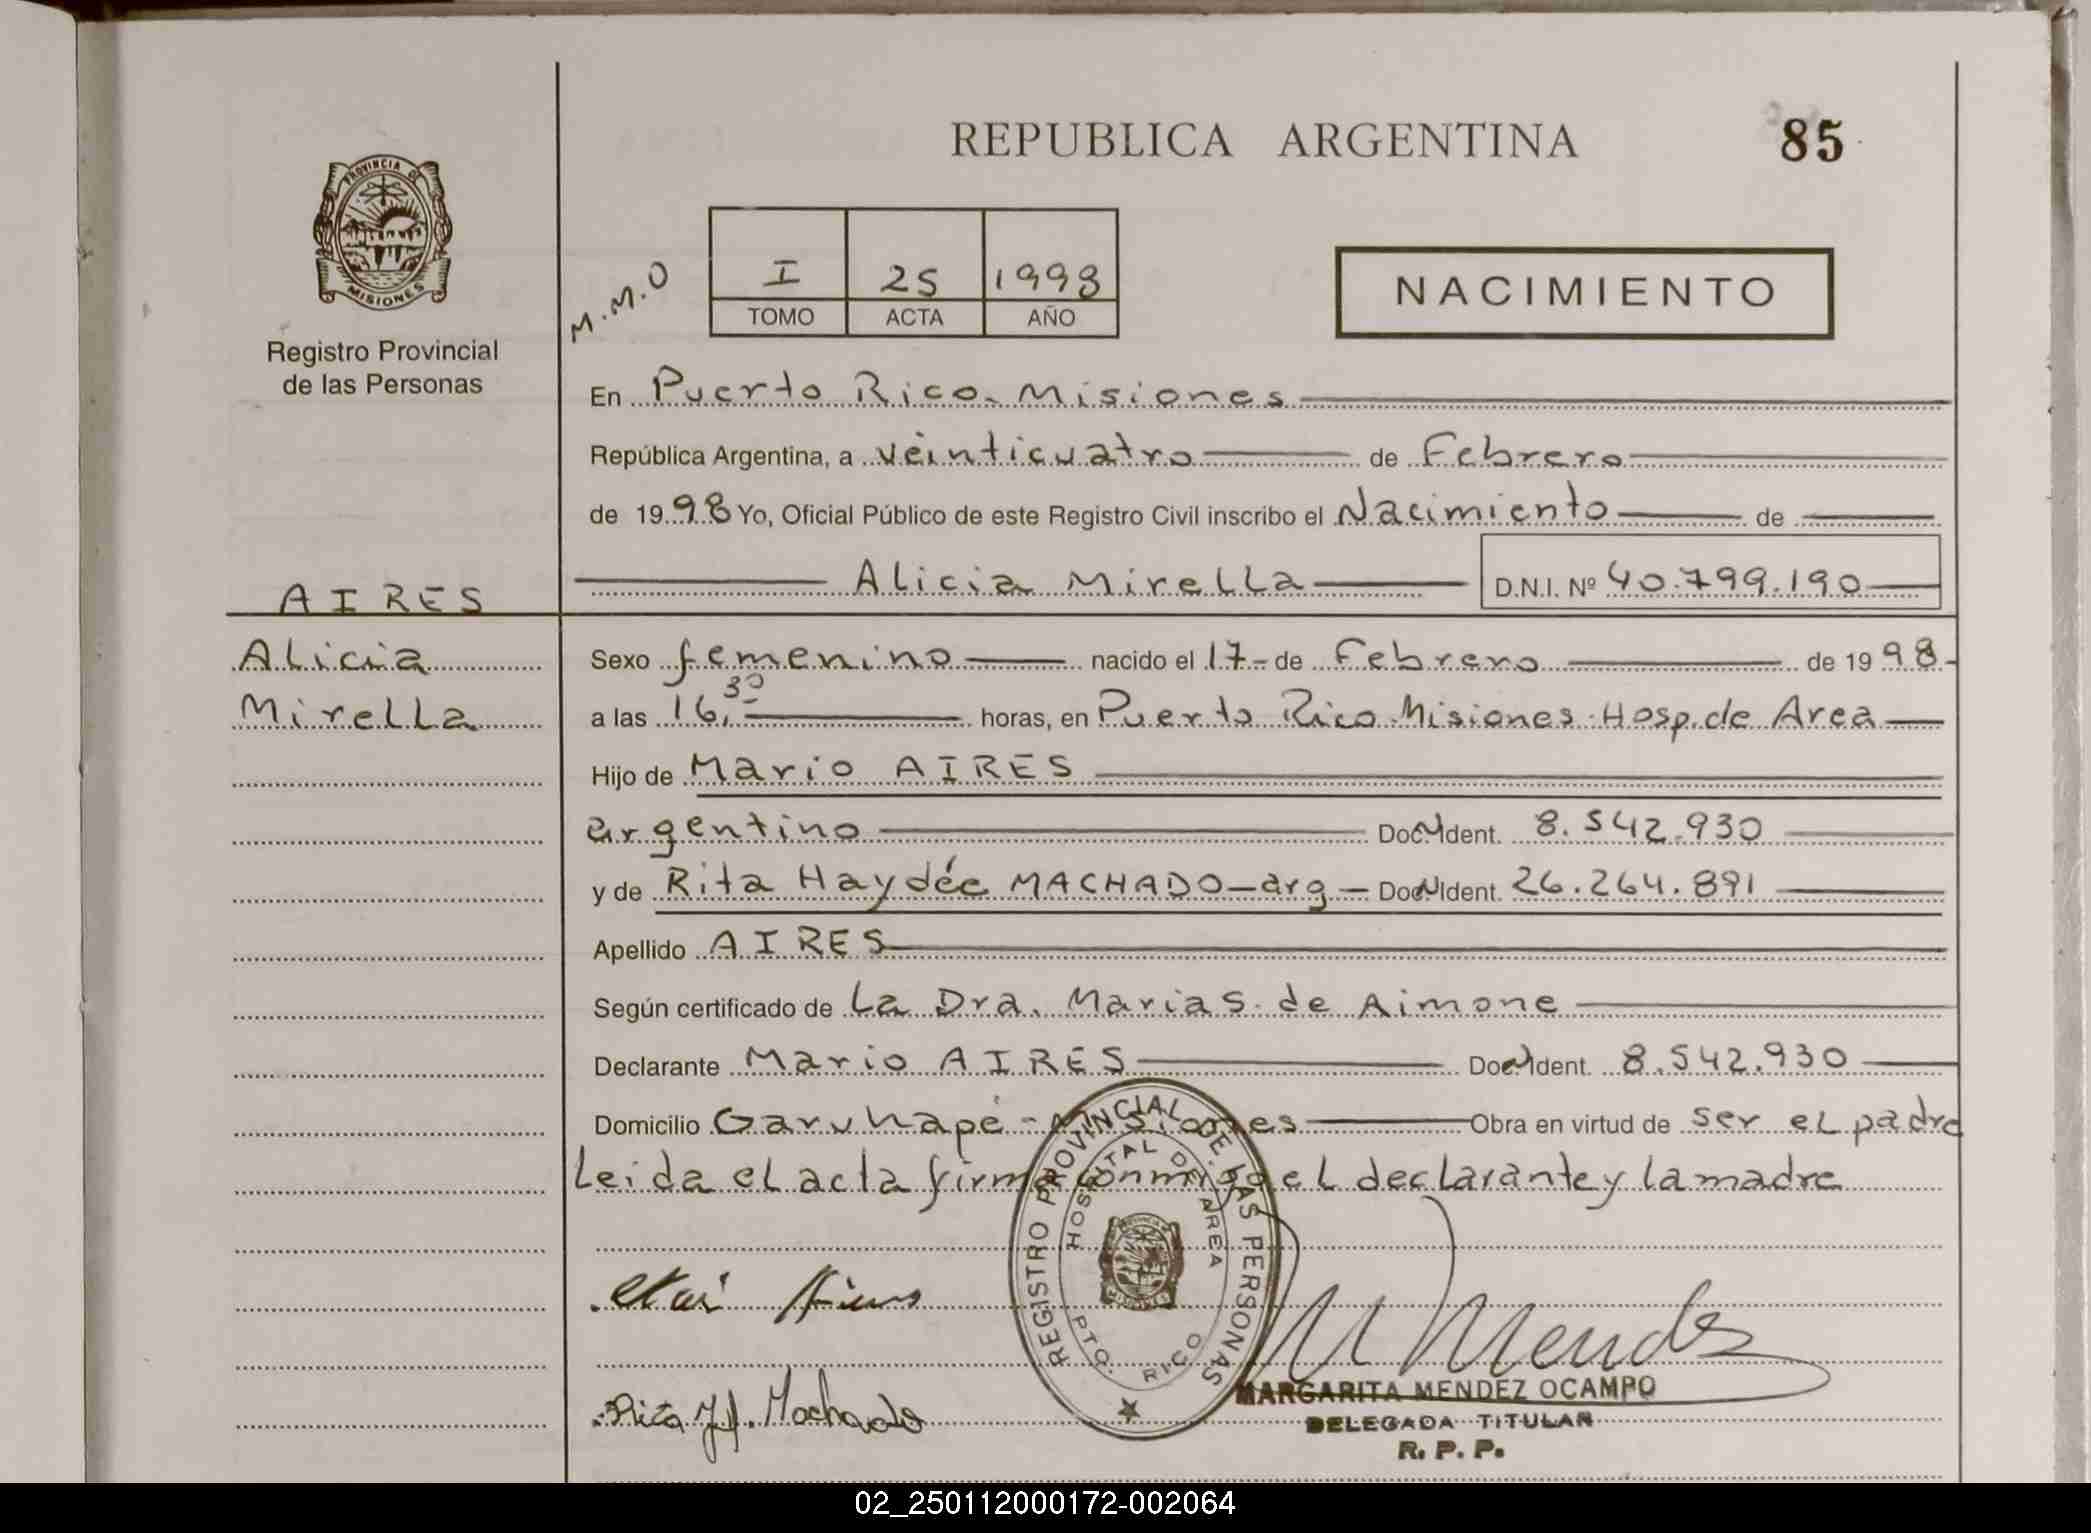 REPUBLICA ARGENTINA
85
PROVINCIA DE
MISIONES
Registro Provincial
de las Personas
M.M.O
I 25 1998
TOMO ACTA AÑO
NACIMIENTO
En Puerto Rico. Misiones
República Argentina, a veinticuatro de Febrero
de 1998 Yo, Oficial Público de este Registro Civil inscribo el Nacimiento de
Alicia Mirella D.N.I. Nº 40.799.190
AIRES
Alicia
Mirella
Sexo femenino nacido el 17 de Febrero de 1998
a las 16,30 horas, en Puerto Rico. Misiones. Hosp. de Area
Hijo de Mario AIRES
argentino Doc. Ident. 8.542.930
y de Rita Haydée MACHADO - arg - Doc. Ident. 26.264.891
Apellido AIRES
Según certificado de La Dra. Maria S. de Aimone
Declarante Mario AIRES Doc. Ident. 8.542.930
Domicilio Garuhapé - Misiones Obra en virtud de ser el padre
Leida el acta firma conmigo el declarante y la madre
REGISTRO PROVINCIAL DE LAS PERSONAS
HOSPITAL DE AREA
PTO. RICO
Rita H. Machado
M Mendez
MARGARITA MENDEZ OCAMPO
DELEGADA TITULAR
R. P. P.
02_250112000172-002064